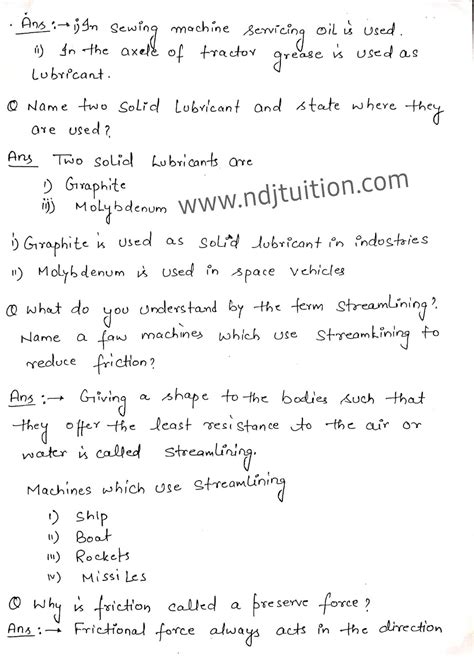 Ans :→ i) In sewing machine servicing oil is used.
ii) In the axele of tractor grease is used as
lubricant.
Q Name two solid lubricant and state where they
are used?
Ans Two solid lubricants are
i) Graphite
ii) Molybdenum
www.ndjtuition.com
i) Graphite is used as solid lubricant in industries
ii) Molybdenum is used in space vehicles
Q What do you understand by the term streamlining?
Name a faw machines which use streamlining to
reduce friction?
Ans :→ Giving a shape to the bodies such that
they offer the least resistance to the air or
water is called streamlining.
Machines which use streamlining
i) Ship
ii) Boat
iii) Rockets
iv) Missiles
Q Why is friction called a preserve force?
Ans :→ Frictional force always acts in the direction